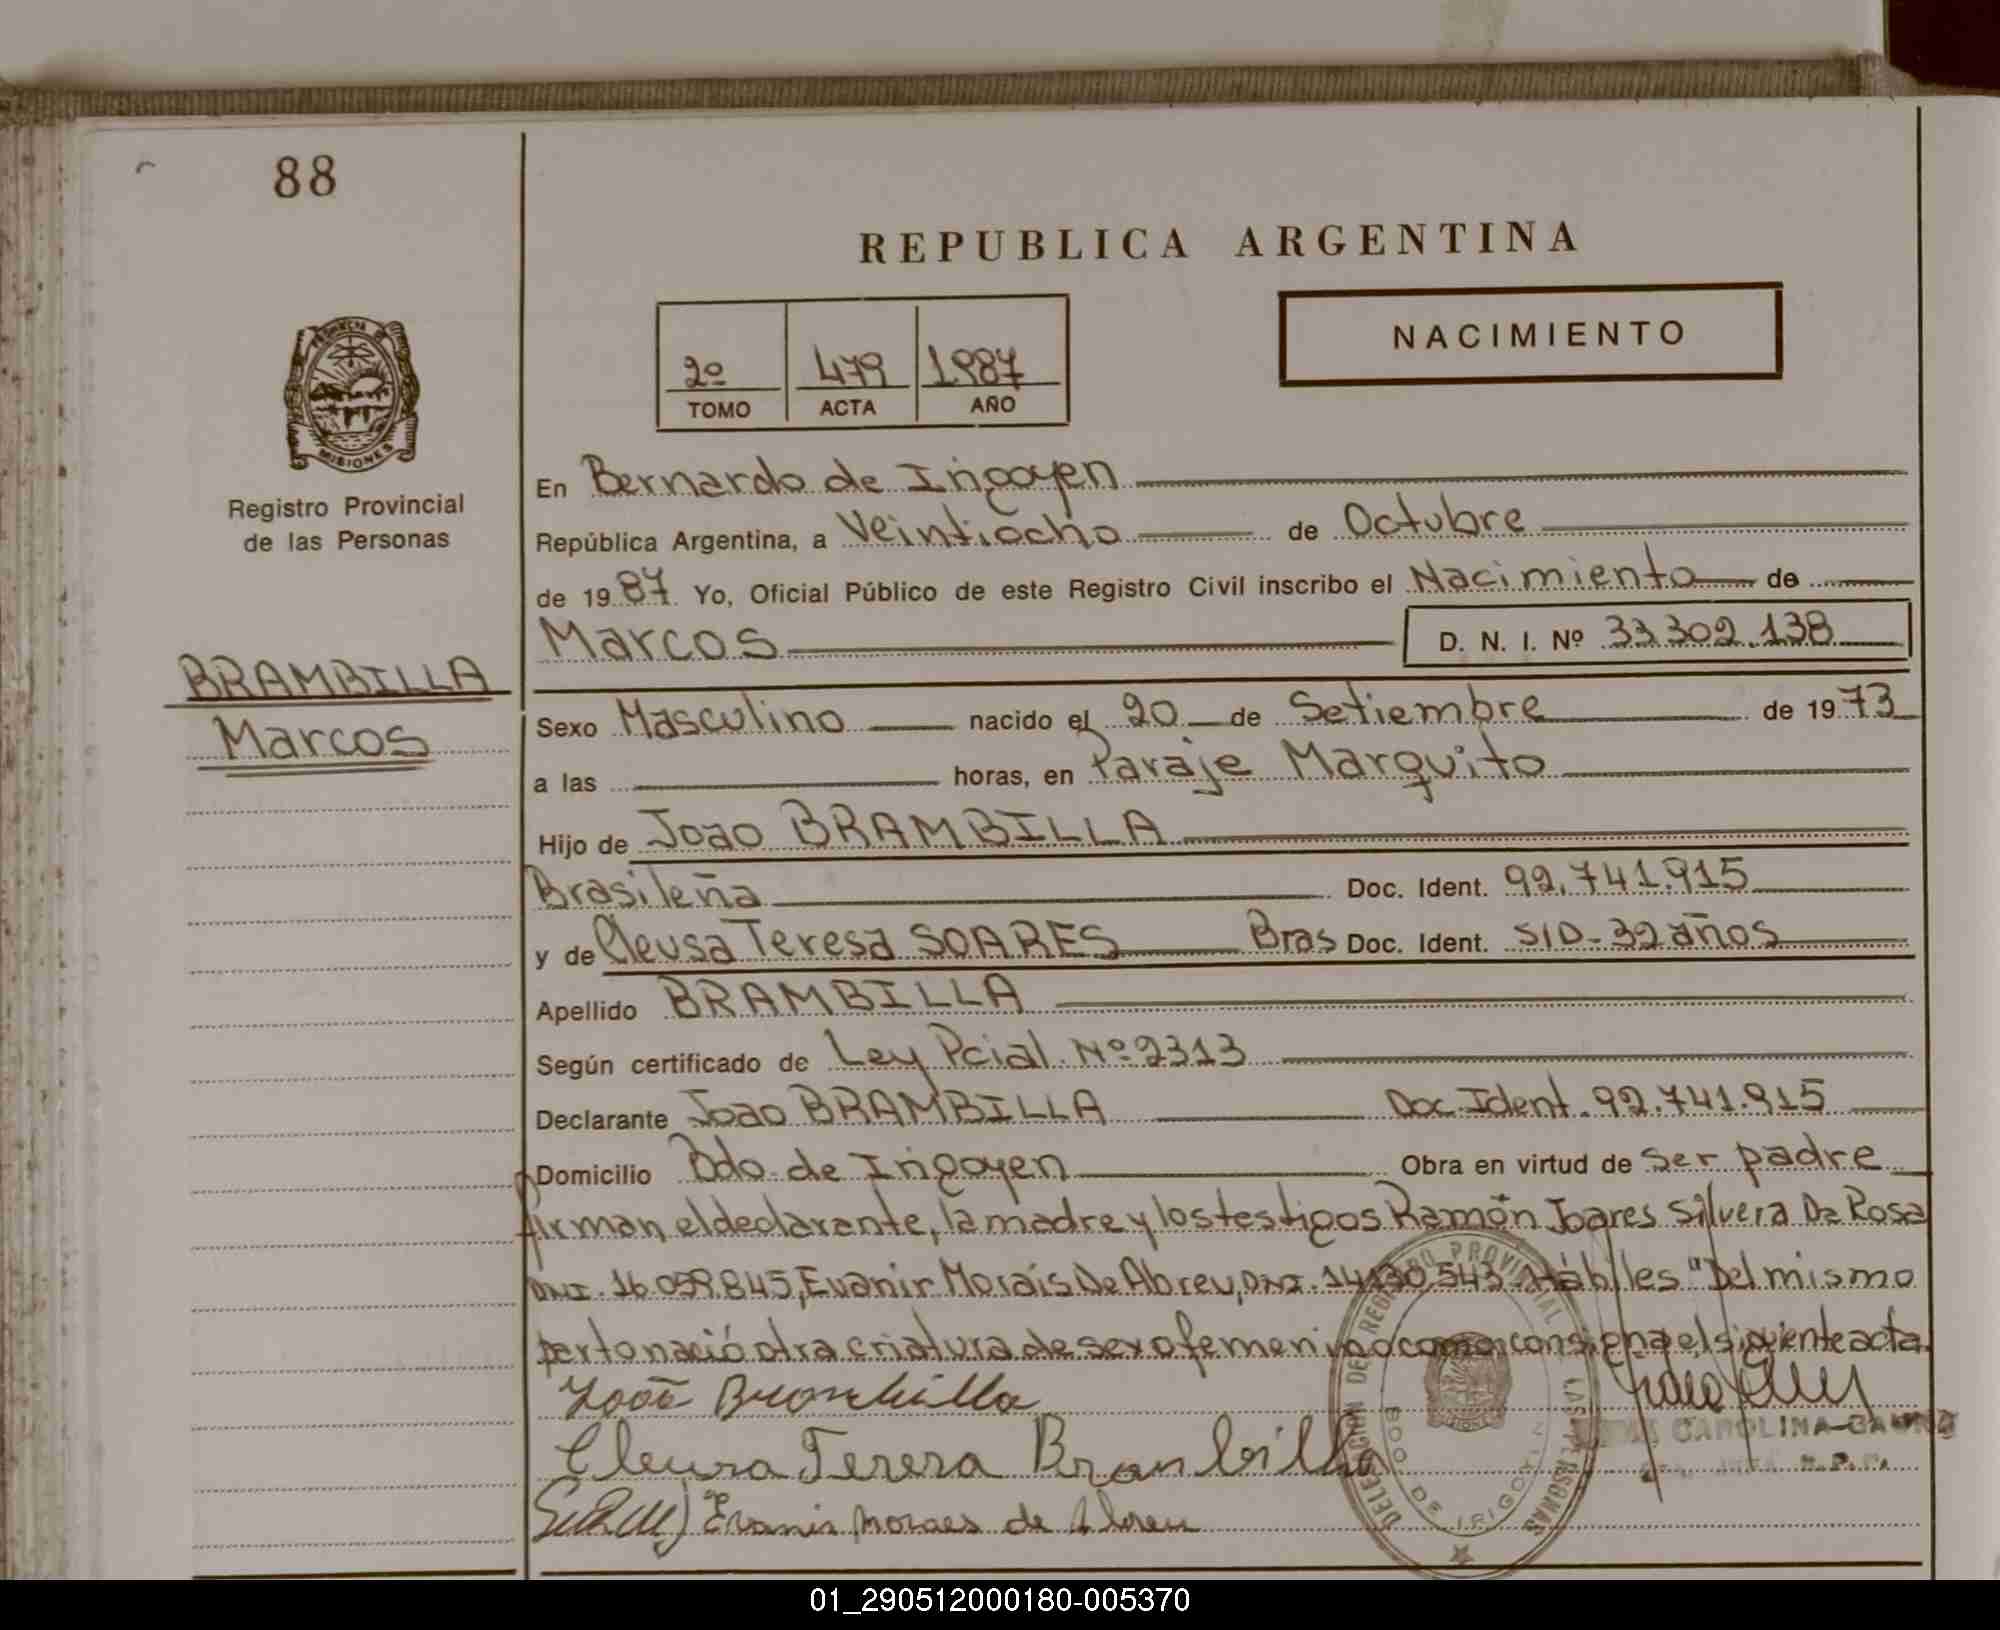 88
REPUBLICA ARGENTINA
NACIMIENTO
2º 479 1987
TOMO ACTA AÑO
PROVINCIA DE
MISIONES
Registro Provincial
de las Personas
BRAMBILLA
Marcos
En Bernardo de Irigoyen
República Argentina, a Veintiocho de Octubre
de 1987 Yo, Oficial Público de este Registro Civil inscribo el Nacimiento de
Marcos D. N. I. Nº 33.302.138
Sexo Masculino nacido el 20 de Setiembre de 1973
a las horas, en Paraje Marquito
Hijo de Joao BRAMBILLA
Brasileña Doc. Ident. 92.741.915
y de Cleusa Teresa SOARES Bras Doc. Ident. S/D-32 años
Apellido BRAMBILLA
Según certificado de Ley Pcial. Nº 2313
Declarante Joao BRAMBILLA Doc. Ident. 92.741.915
Domicilio Bdo. de Irigoyen Obra en virtud de ser padre
firman el declarante, la madre y los testigos Ramón Joares Silvera Da Rosa
DNI. 16.059.845, Evanir Morais De Abreu, DNI. 14.130.543 Hábiles "Del mismo
parto nació otra criatura de sexo femenino como consigna el siguiente acta.
João Brambilla
Cleusa Teresa Brambilla
Evanir Moraes de Abreu
DELEGACION DEL REGISTRO PROVINCIAL DE LAS PERSONAS
BDO. DE IRIGOYEN
CAROLINA
01_290512000180-005370